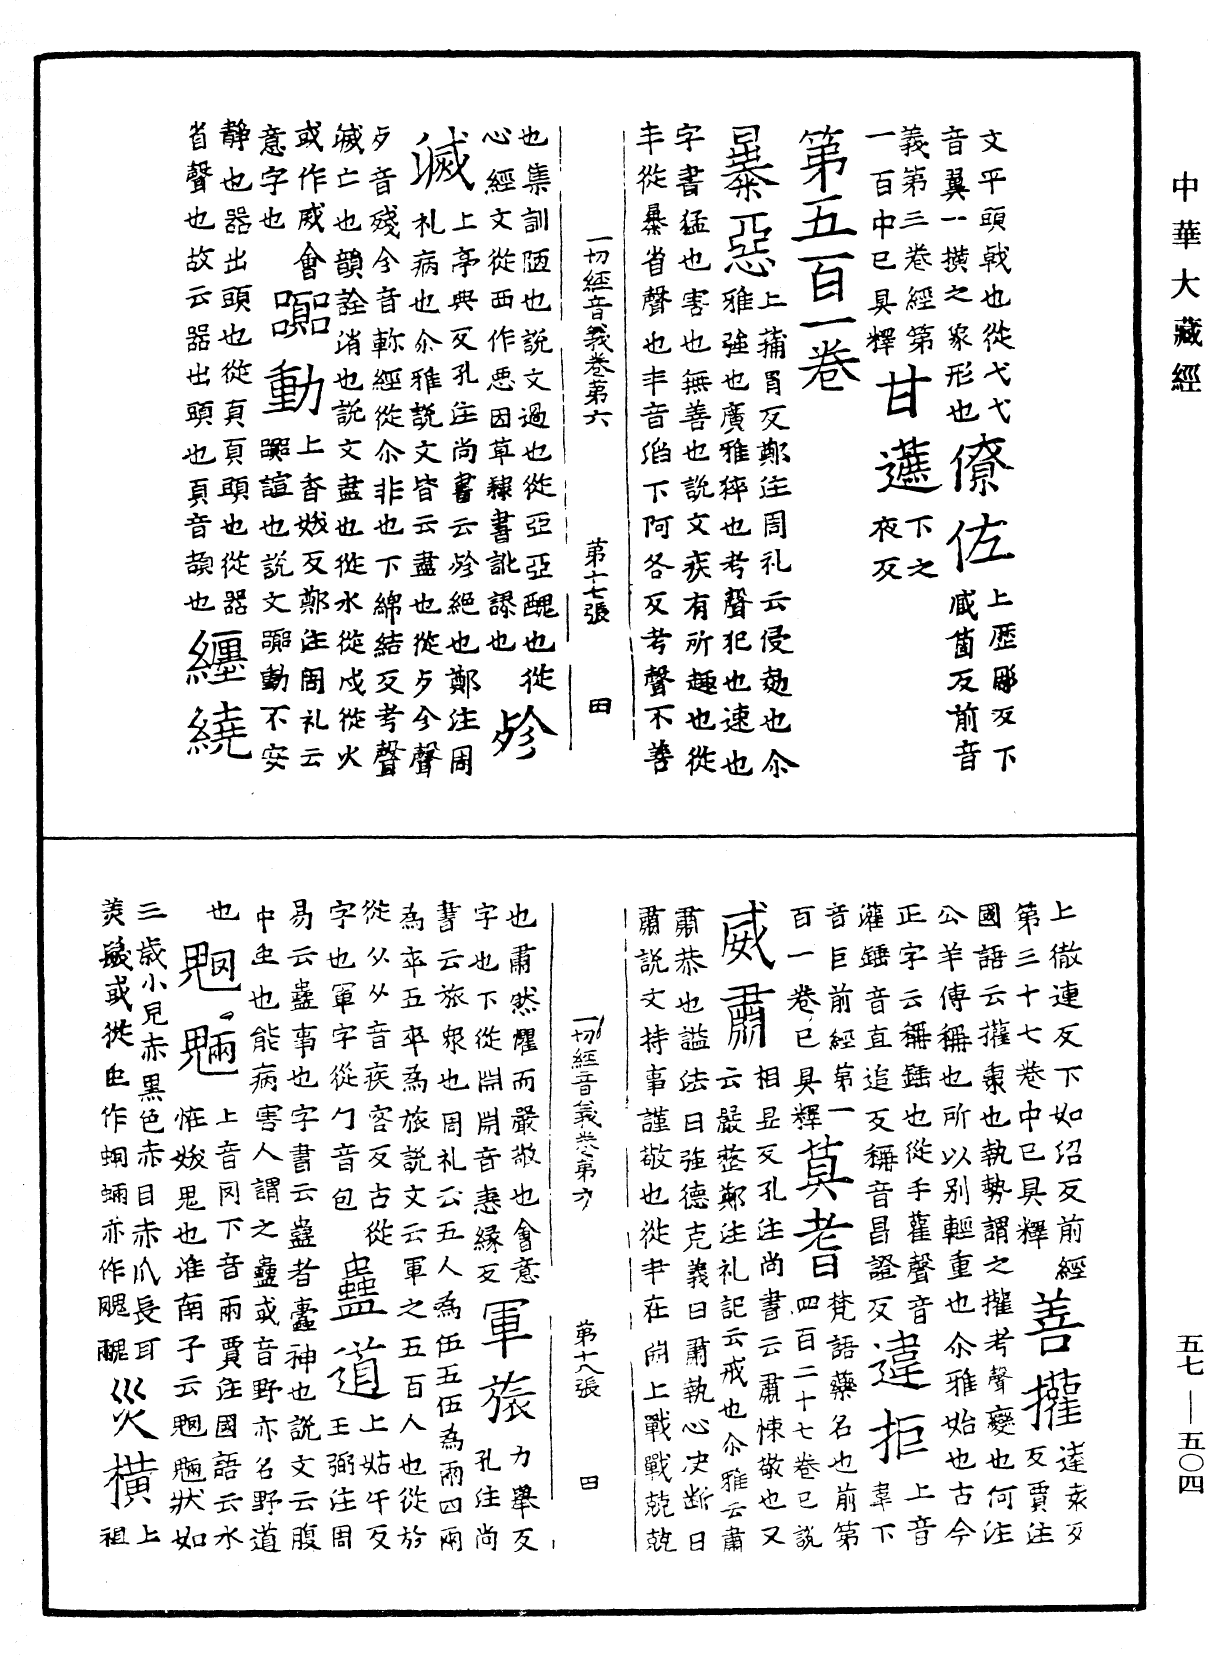 中華大藏經
文平頭戟也從弋弋
音翼一橫之象形也
僚佐
上歷彫反下
臧箇反前音
義第三卷經第
一百中已具釋
甘蔗
下之
夜反
第五百一卷
暴惡
上蒲冒反鄭注周礼云侵勊也尒
雅強也廣雅猝也考聲犯也速也
字書猛也害也無善也說文疾有所趣也從
丰從暴省聲也丰音滔下阿各反考聲不善
一切經音義卷第六　第十七張　四
也集訓陋也說文過也從亞亞醜也從
心經文從西作悪因草隸書訛謬也
殄
滅
上亭典反孔注尚書云殄絕也鄭注周
礼病也尒雅說文皆云盡也從歹㐱聲
歹音殘㐱音軫經從尒非也下綿結反考聲
滅亡也韻詮消也說文盡也從水從戍從火
或作烕會
意字也
嚻動
上香嬌反鄭注周礼云
嚻諠也說文嚻動不安
靜也器出頭也從頁頁頭也從㗊
省聲也故云器出頭也頁音頡也
纏繞
上徹連反下如紹反前經
第三十七卷中已具釋
善權
逵袁反
反賈注
國語云權秉也執勢謂之權考聲變也何注
公羊傳稱也所以別輕重也尒雅始也古今
正字云稱錘也從手雚聲音
灌錘音直追反稱音昌證反
違拒
上音
韋下
音巨前經第一
百一卷已具釋
莫耆
梵語藥名也前第
四百二十七卷已說
威肅
相昱反孔注尚書云肅悚敬也又
云嚴整鄭注礼記云戒也尒雅云肅
肅恭也謚法曰強德克義曰肅執心決斷曰
肅說文持事謹敬也從肀在𣶒上戰戰兢兢
一切經音義卷第六　第十八張　四
也肅然懼而嚴敬也會意
字也下從𣶒𣶒音恚緣反
軍旅
力舉反
孔注尚
書云旅眾也周礼云五人為伍五伍為兩四兩
為卒五卒為旅說文云軍之五百人也從㫃
從从从音疾容反古從
字也軍字從勹音包
蠱道
上姑午反
王弼注周
易云蠱事也字書云蠱者蠹神也說文云腹
中虫也能病害人謂之蠱或音野亦名野道
也
魍魎
上音网下音兩賈注國語云水
恠妖鬼也淮南子云魍魎狀如
三歲小兒赤黑色赤目赤爪長耳
美𩭤或從虫作蝄蜽亦作𩳌𩴆
災橫
上
祖
五七—五〇四